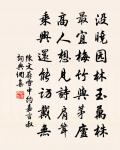 没晚园林玉万株
最宜梅竹与茅庐
高人想见诗肩耸
乘兴还能访戴无
陈文蔚雪中约嘉言叔
词典网集